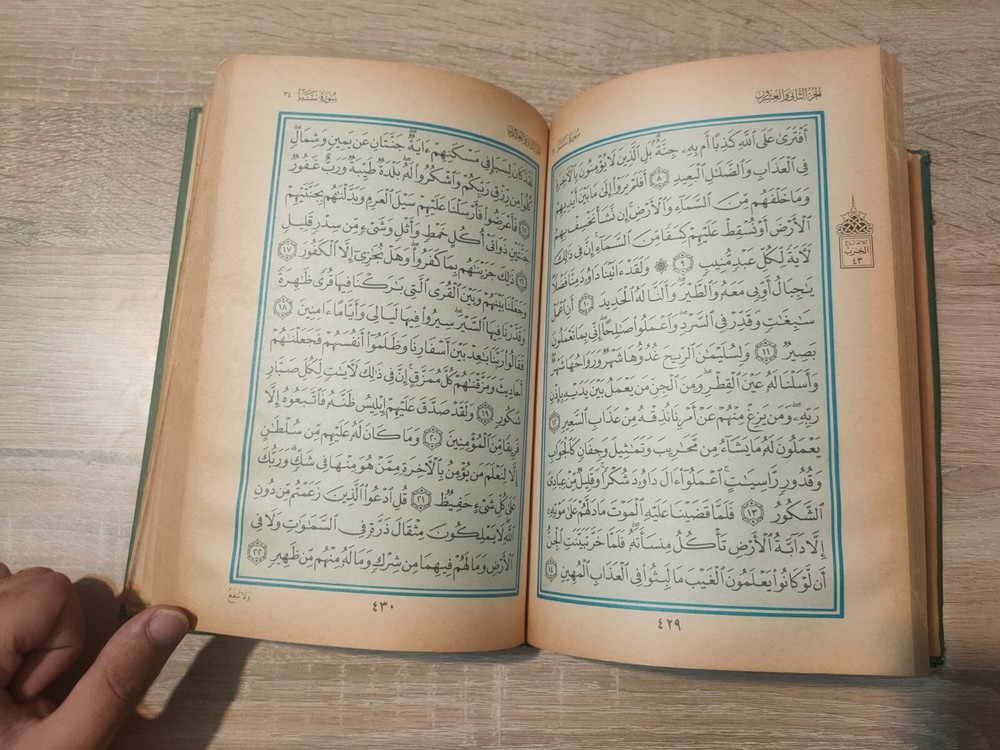 الجزء الثاني والعشرون
سورة سبأ
أَفْتَرَىٰ عَلَى ٱللَّهِ كَذِبًا أَم بِهِۦ جِنَّةٌۢ بَلِ ٱلَّذِينَ لَا يُؤْمِنُونَ بِٱلْأَخِرَةِ
فِى ٱلْعَذَابِ وَٱلضَّلَٰلِ ٱلْبَعِيدِ ٨ أَفَلَمْ يَرَوْا۟ إِلَىٰ مَا بَيْنَ أَيْدِيهِمْ
وَمَا خَلْفَهُم مِّنَ ٱلسَّمَآءِ وَٱلْأَرْضِ إِن نَّشَأْ نَخْسِفْ بِهِمُ
ٱلْأَرْضَ أَوْ نُسْقِطْ عَلَيْهِمْ كِسَفًا مِّنَ ٱلسَّمَآءِ إِنَّ فِى ذَٰلِكَ
لَأَيَةً لِّكُلِّ عَبْدٍ مُّنِيبٍ ٩ وَلَقَدْ ءَاتَيْنَا دَاوُۥدَ مِنَّا فَضْلًا
يَٰجِبَالُ أَوِّبِى مَعَهُۥ وَٱلطَّيْرَ وَأَلَنَّا لَهُ ٱلْحَدِيدَ ١٠ أَنِ ٱعْمَلْ
سَٰبِغَٰتٍ وَقَدِّرْ فِى ٱلسَّرْدِ وَٱعْمَلُوا۟ صَٰلِحًا إِنِّى بِمَا تَعْمَلُونَ
بَصِيرٌ ١١ وَلِسُلَيْمَٰنَ ٱلرِّيحَ غُدُوُّهَا شَهْرٌ وَرَوَاحُهَا شَهْرٌ
وَأَسَلْنَا لَهُۥ عَيْنَ ٱلْقِطْرِ وَمِنَ ٱلْجِنِّ مَن يَعْمَلُ بَيْنَ يَدَيْهِ بِإِذْنِ
رَبِّهِۦ وَمَن يَزِغْ مِنْهُمْ عَنْ أَمْرِنَا نُذِقْهُ مِنْ عَذَابِ ٱلسَّعِيرِ ١٢
يَعْمَلُونَ لَهُۥ مَا يَشَآءُ مِن مَّحَٰرِيبَ وَتَمَٰثِيلَ وَجِفَانٍ كَٱلْجَوَابِ
وَقُدُورٍ رَّاسِيَٰتٍ ٱعْمَلُوٓا۟ ءَالَ دَاوُۥدَ شُكْرًا وَقَلِيلٌ مِّنْ عِبَادِىَ
ٱلشَّكُورُ ١٣ فَلَمَّا قَضَيْنَا عَلَيْهِ ٱلْمَوْتَ مَا دَلَّهُمْ عَلَىٰ مَوْتِهِۦٓ
إِلَّا دَآبَّةُ ٱلْأَرْضِ تَأْكُلُ مِنسَأَتَهُۥ فَلَمَّا خَرَّ تَبَيَّنَتِ ٱلْجِنُّ
أَن لَّوْ كَانُوا۟ يَعْلَمُونَ ٱلْغَيْبَ مَا لَبِثُوا۟ فِى ٱلْعَذَابِ ٱلْمُهِينِ ١٤
الحزب
٤٣
٤٢٩
سورة سبأ ٣٤
لَقَدْ كَانَ لِسَبَإٍ فِى مَسْكَنِهِمْ ءَايَةٌ جَنَّتَانِ عَن يَمِينٍ وَشِمَالٍ
كُلُوا۟ مِن رِّزْقِ رَبِّكُمْ وَٱشْكُرُوا۟ لَهُۥ بَلْدَةٌ طَيِّبَةٌ وَرَبٌّ غَفُورٌ
١٥ فَأَعْرَضُوا۟ فَأَرْسَلْنَا عَلَيْهِمْ سَيْلَ ٱلْعَرِمِ وَبَدَّلْنَٰهُم بِجَنَّتَيْهِمْ
جَنَّتَيْنِ ذَوَاتَىْ أُكُلٍ خَمْطٍ وَأَثْلٍ وَشَىْءٍ مِّن سِدْرٍ قَلِيلٍ
١٦ ذَٰلِكَ جَزَيْنَٰهُم بِمَا كَفَرُوا۟ وَهَلْ نُجَٰزِىٓ إِلَّا ٱلْكَفُورَ ١٧
وَجَعَلْنَا بَيْنَهُمْ وَبَيْنَ ٱلْقُرَى ٱلَّتِى بَٰرَكْنَا فِيهَا قُرًى ظَٰهِرَةً
وَقَدَّرْنَا فِيهَا ٱلسَّيْرَ سِيرُوا۟ فِيهَا لَيَالِىَ وَأَيَّامًا ءَامِنِينَ ١٨
فَقَالُوا۟ رَبَّنَا بَٰعِدْ بَيْنَ أَسْفَارِنَا وَظَلَمُوٓا۟ أَنفُسَهُمْ فَجَعَلْنَٰهُمْ
أَحَادِيثَ وَمَزَّقْنَٰهُمْ كُلَّ مُمَزَّقٍ إِنَّ فِى ذَٰلِكَ لَأَيَٰتٍ لِّكُلِّ صَبَّارٍ
شَكُورٍ ١٩ وَلَقَدْ صَدَّقَ عَلَيْهِمْ إِبْلِيسُ ظَنَّهُۥ فَٱتَّبَعُوهُ إِلَّا
فَرِيقًا مِّنَ ٱلْمُؤْمِنِينَ ٢٠ وَمَا كَانَ لَهُۥ عَلَيْهِم مِّن سُلْطَٰنٍ
إِلَّا لِنَعْلَمَ مَن يُؤْمِنُ بِٱلْأَخِرَةِ مِمَّنْ هُوَ مِنْهَا فِى شَكٍّ وَرَبُّكَ
عَلَىٰ كُلِّ شَىْءٍ حَفِيظٌ ٢١ قُلِ ٱدْعُوا۟ ٱلَّذِينَ زَعَمْتُم مِّن دُونِ
ٱللَّهِ لَا يَمْلِكُونَ مِثْقَالَ ذَرَّةٍ فِى ٱلسَّمَٰوَٰتِ وَلَا فِى
ٱلْأَرْضِ وَمَا لَهُمْ فِيهِمَا مِن شِرْكٍ وَمَا لَهُۥ مِنْهُم مِّن ظَهِيرٍ ٢٢
ولا تنفع
٤٣٠